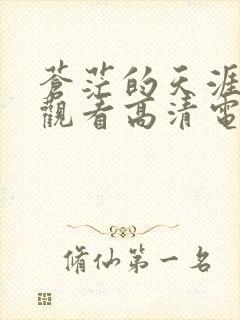 蒼茫的天涯
觀看高清電
脩仙第一名